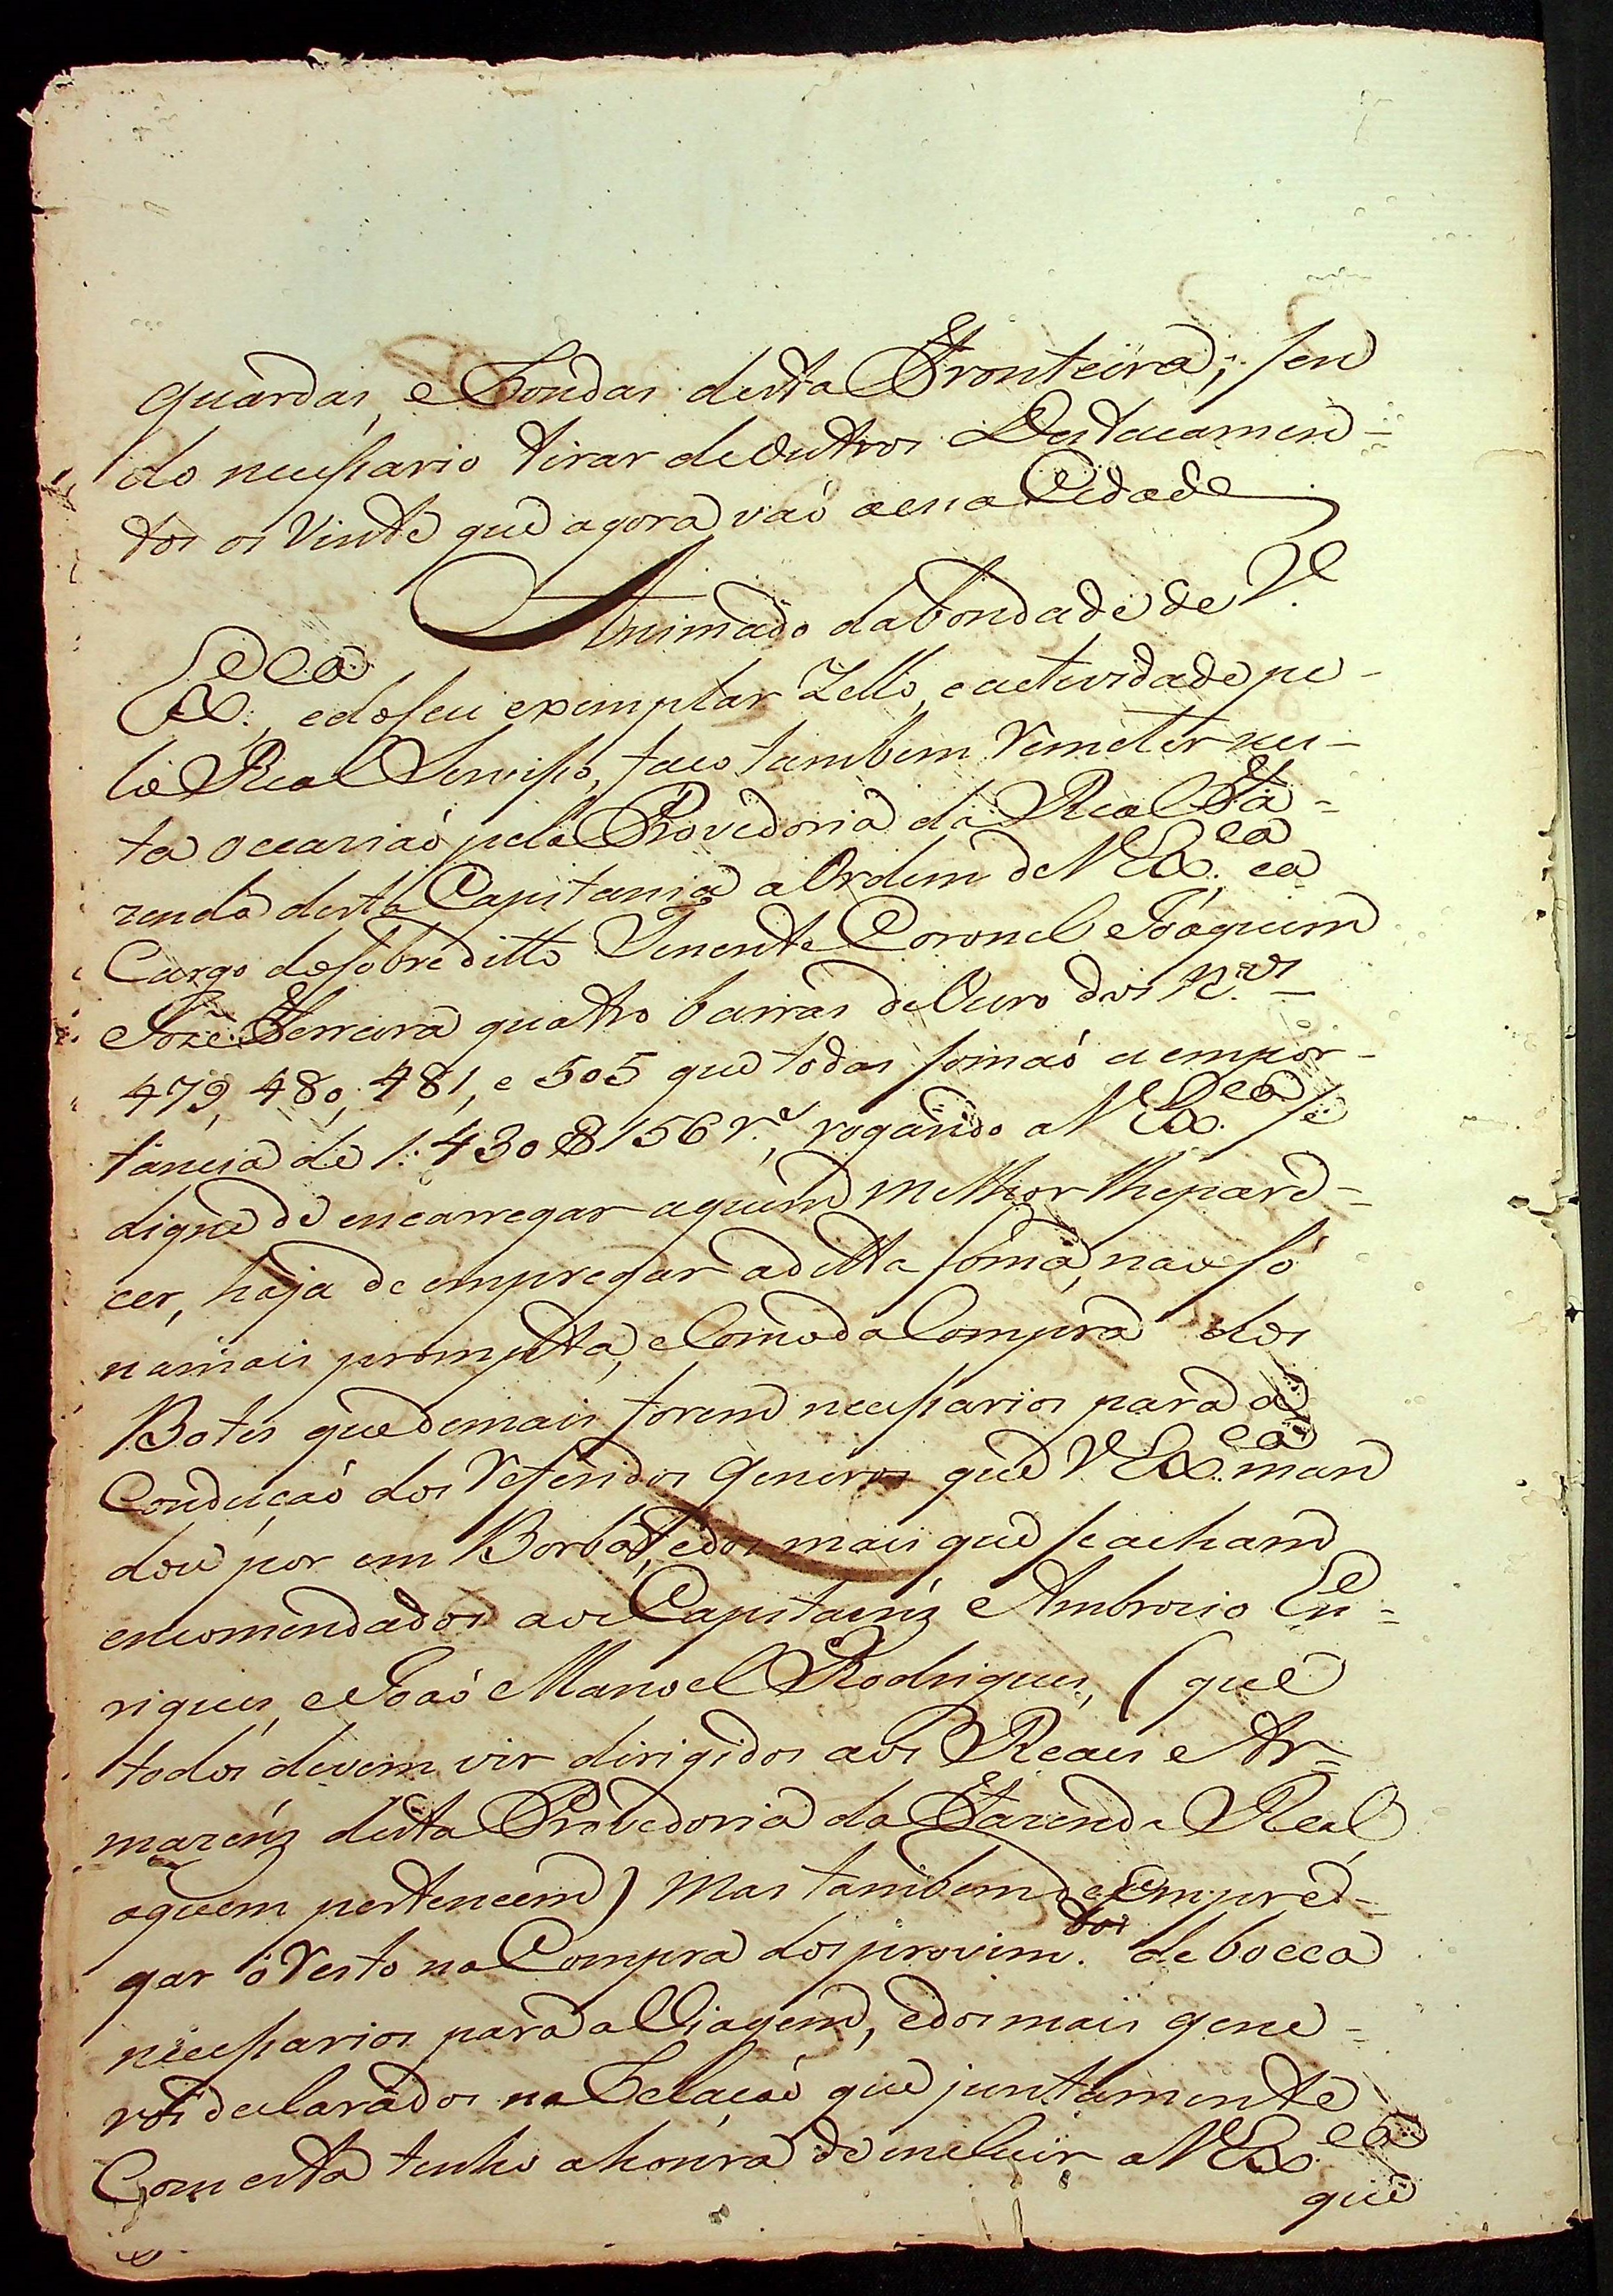 guardas, e Rondas desta Fronteira; sen
do necessario tirar de Outros Destacamen-
tos os Vinte que agora vaó a essa Cidade
Animado da bondade de V.
Ex.ca, e do seu exemplar Zello, e actividade pe-
lo Real Servisso, faco tambem remeter nes-
ta occaziaó pela Provedoria da Real Fa-
zenda desta Capitania a Ordem de V Ex.ca e a
Cargo do sobreditto Tenente Coronel Joaquim
Joze Ferreira quatro barras de Ouro dos N.os
479, 480, 481, e 505 que todas somaó a empor-
tancia de 1:430$156 r.s, rogando a V Ex.ca se
digne de encarregar a quem melhor lhe pare-
cer, haja de empregar a ditta soma, nao só
na mais prompta, e Comoda Compra dos
Botes que de mais forem necessarios para a
Conduçaó dos referidos generos que V. Ex.ca man
dou por em Borba, e dos mais que se acham
encomendados aos Capitaens Ambrozio En-
riques, e Joaó Manoel Rodrigues, (que
todos devem vir dirigidos aos Reaes Ar-
mazens desta Provedoria da Fazenda Real
a quem pertencem) mas tambem de empre-
gar o resto na Compra dos provim.tos de bocca
necessarios para a Viagem, e dos mais gene-
ros declarados na Relacaó que juntamente
Com esta tenho a honra de incluir a V Ex.ca
que